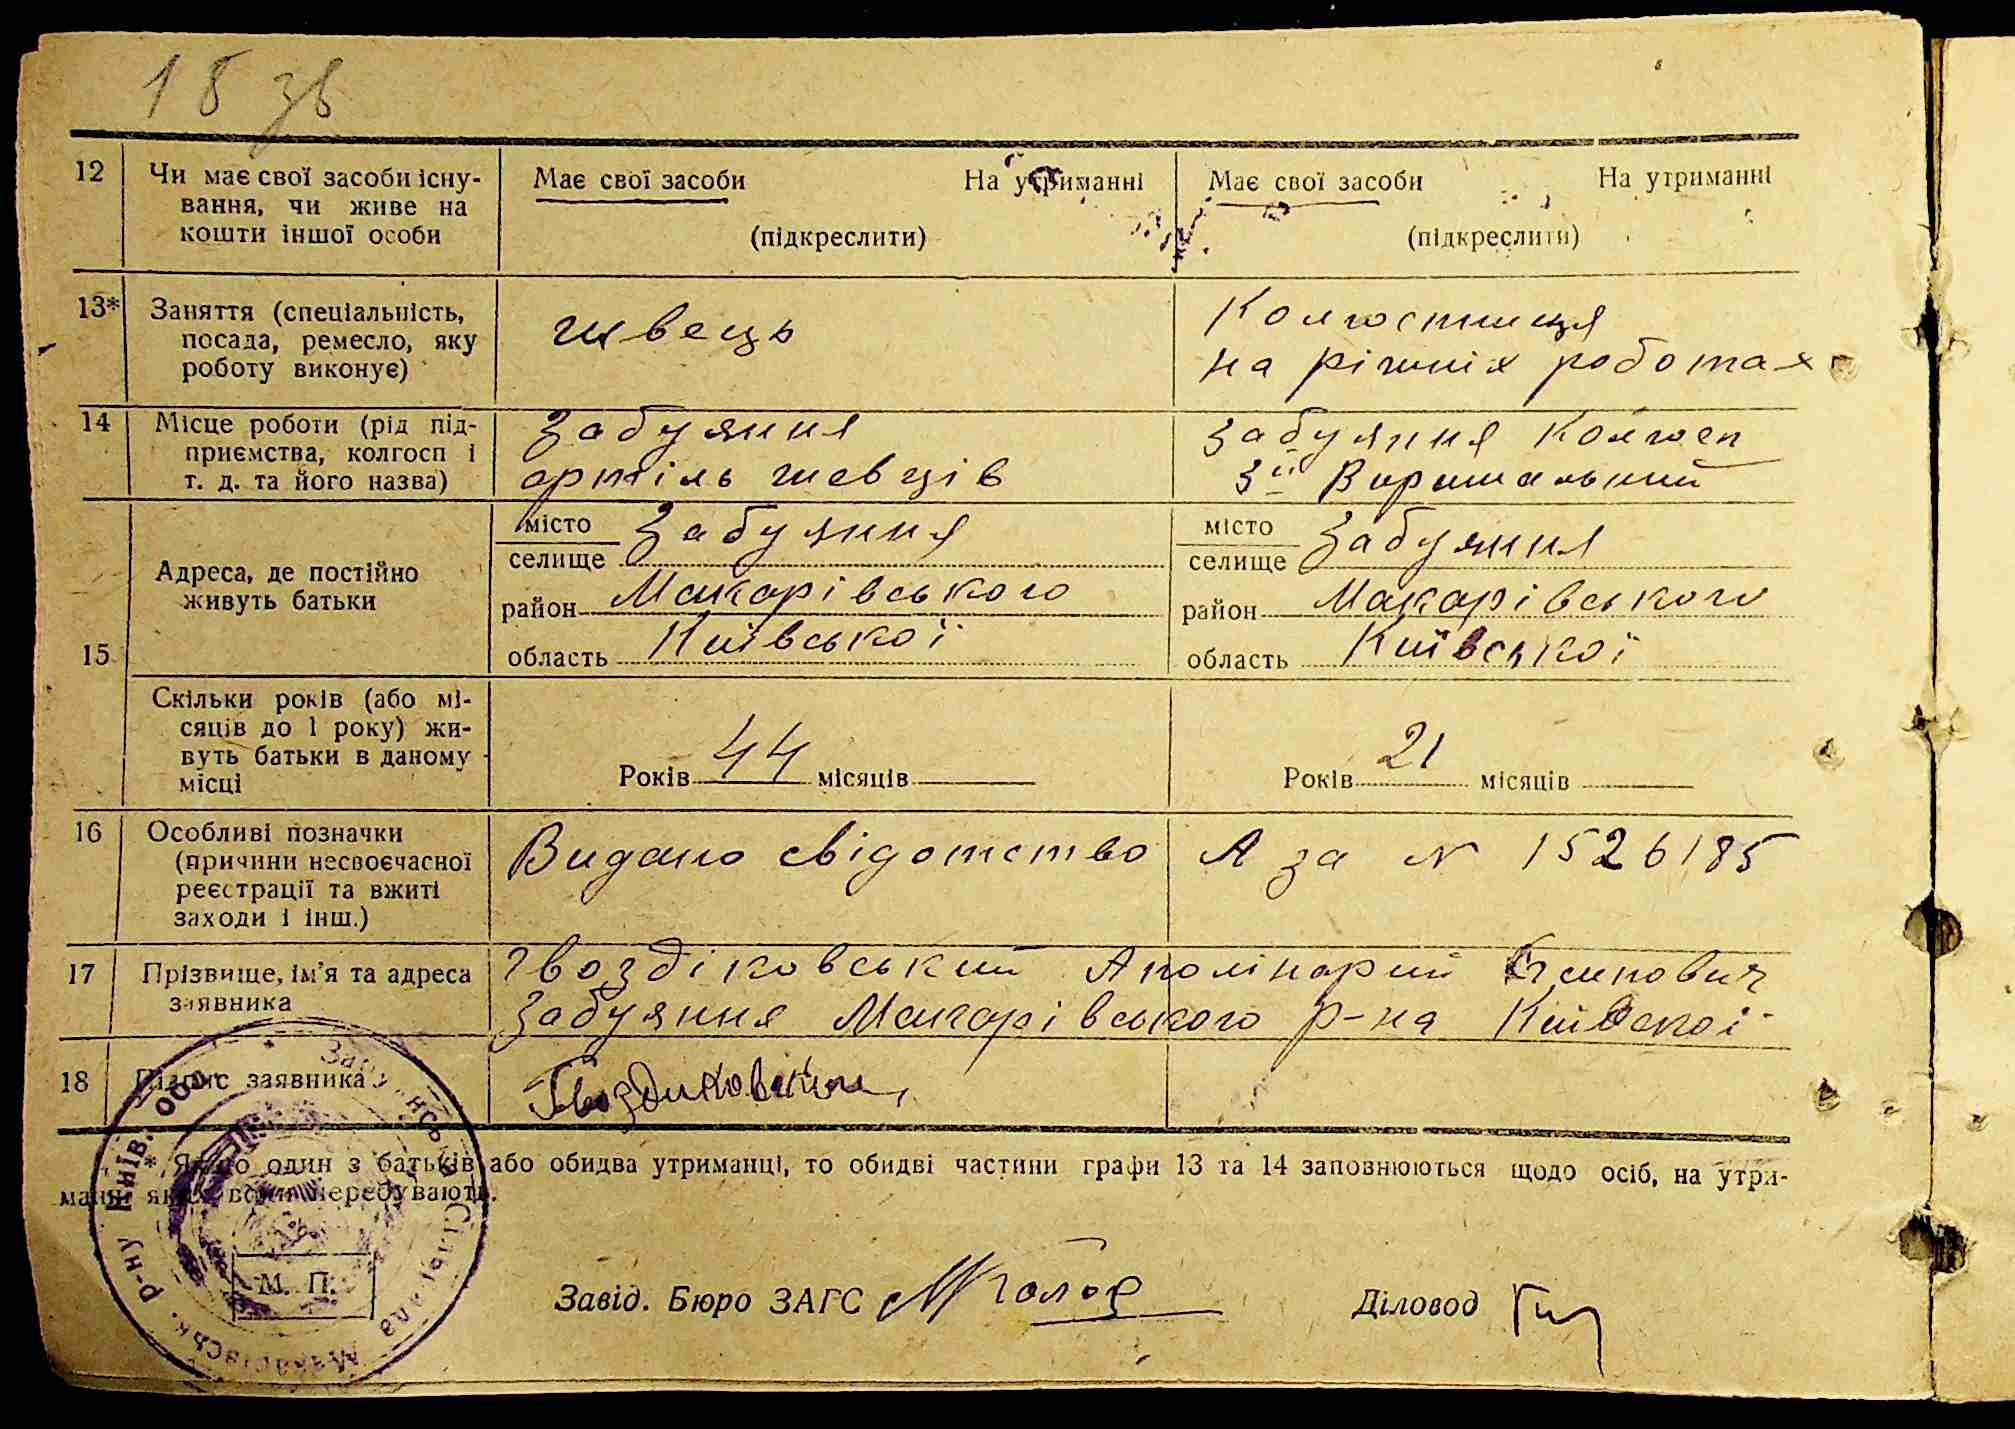 18 зв
12 Чи має свої засоби існу-
вання, чи живе на
кошти іншої особи
Має свої засоби На утриманні
(підкреслити)
Має свої засоби На утриманні
(підкреслити)
13* Заняття (спеціальність,
посада, ремесло, яку
роботу виконує)
швець
Колгоспниця
на різних роботах
14 Місце роботи (рід під-
приємства, колгосп і
т. д. та його назва)
Забуяння
артіль шевців
Забуяння Колгосп
3й Вирішальний
15 Адреса, де постійно
живуть батьки
місто
селище Забуяння
район Макарівського
область Київської
місто
селище Забуяння
район Макарівського
область Київської
Скільки років (або мі-
сяців до 1 року) жи-
вуть батьки в даному
місці
Років 44 місяців
Років 21 місяців
16 Особливі позначки
(причини несвоєчасної
реєстрації та вжиті
заходи і інш.)
Видано свідотство А за N 1526185
17 Прізвище, ім'я та адреса
заявника
Гвоздіковський Аполінарий
Забуяння Макарівського р-на Київскої
18 Підпис заявника
Гвоздиковский
* Якщо один з батьків або обидва утриманці, то обидві частини графи 13 та 14 заповнюються щодо осіб, на утри-
манні яких вони перебувають.
М. П.
Завід. Бюро ЗАГС
Діловод